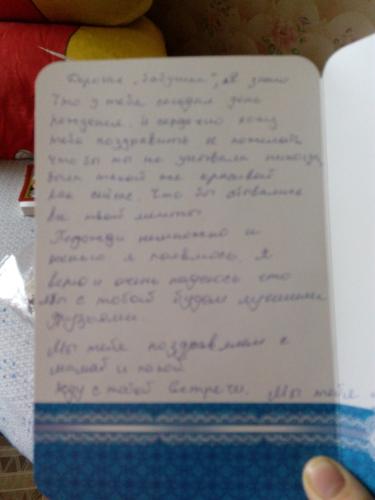 Дорогая "бабушка", я знаю
что у тебя сегодня день
рождения. И сердечно хочу
тебя поздравить и пожелать
что бы ты не унывала никогда
была такой же красивой
как сейчас. Что бы сбывались
все твои мечты
Подожди немножко и
я появлюсь. Я
верю и очень надеюсь что
мы с тобой будем лучшими
друзьями.
Мы тебя поздравляем с
мамой и папой
Жду с тобой встречи. Мы тебя